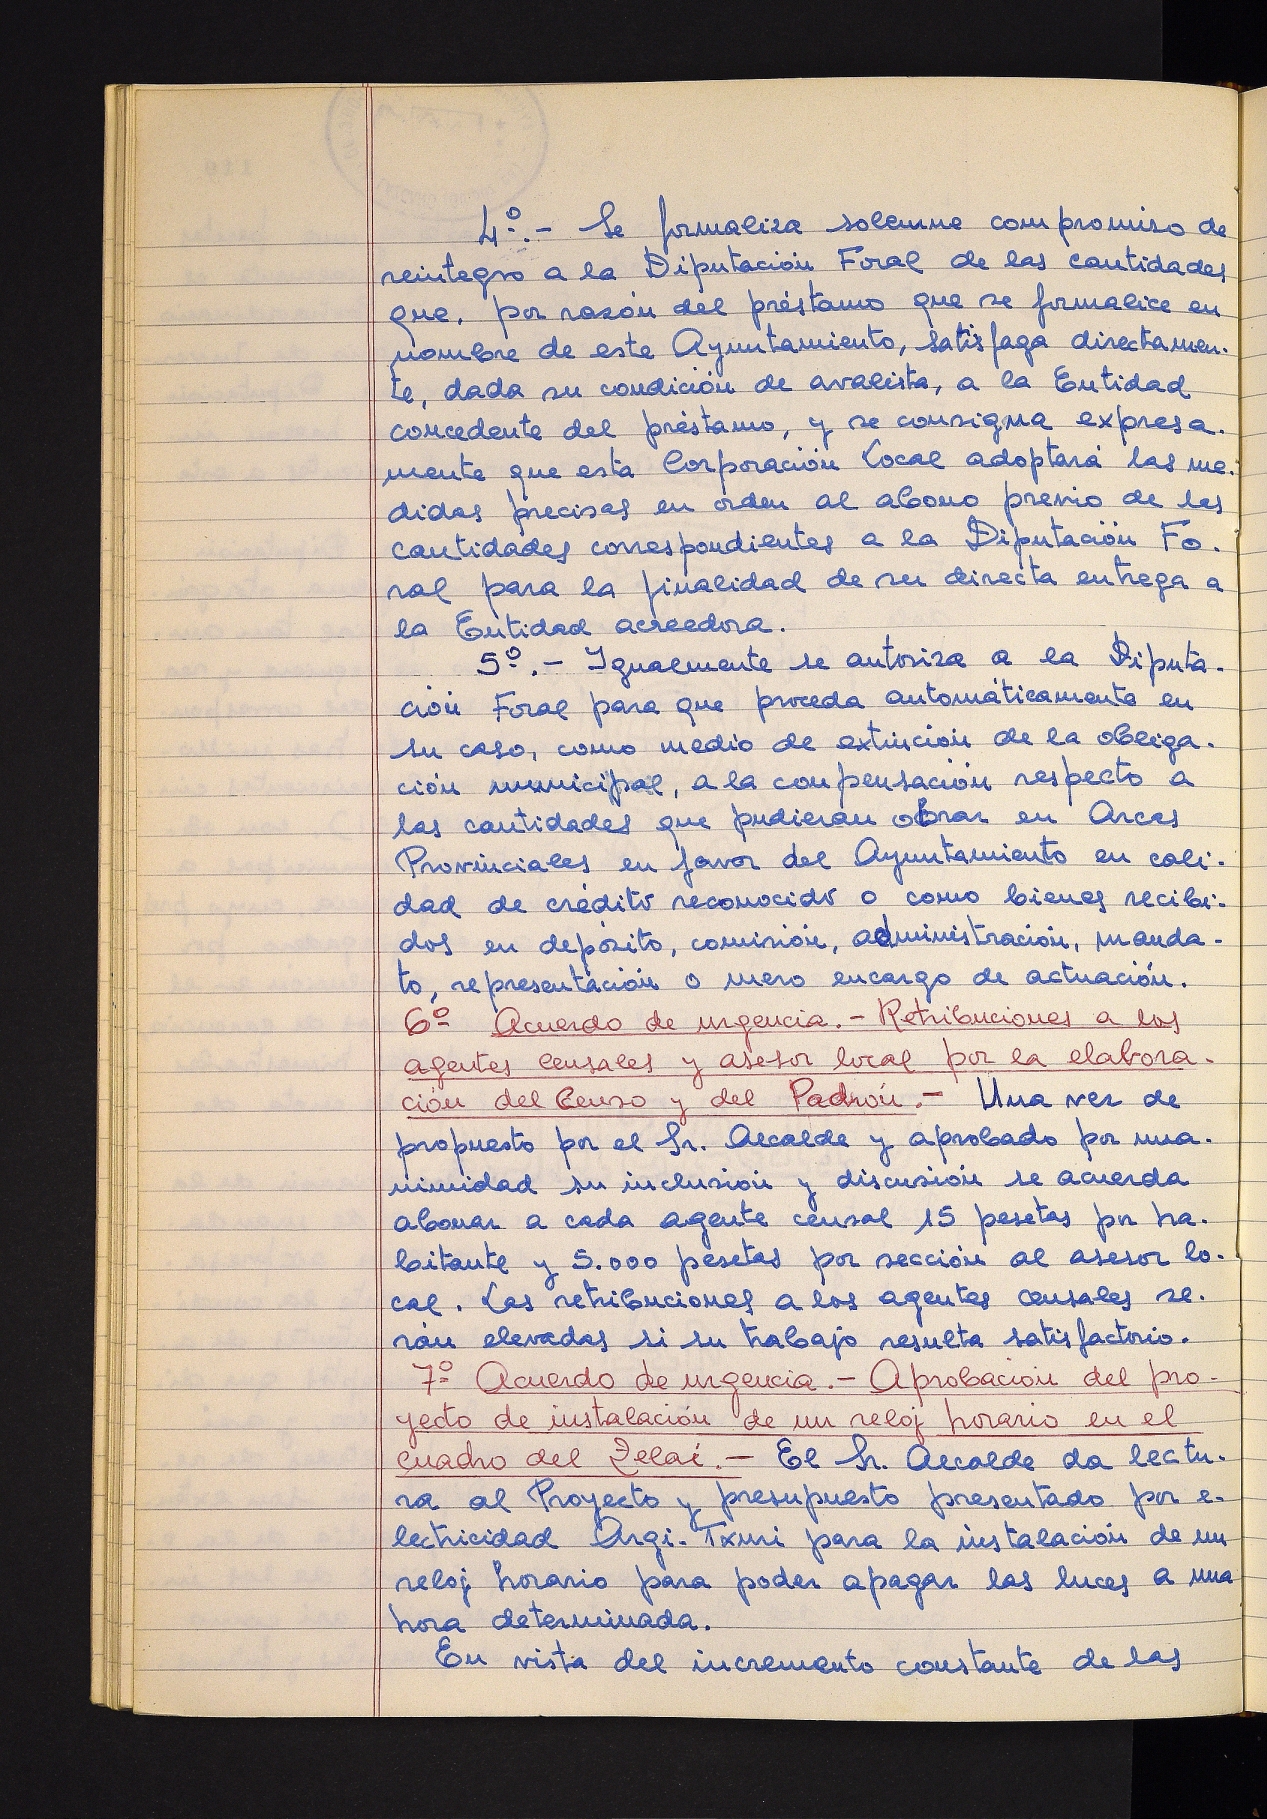 4º.- Se formaliza solemne compromiso de
reintegro a la Diputación Foral de las cantidades
que, por razón del préstamo que se formalice en
nombre de este Ayuntamiento, satisfaga directamen-
te, dada su condición de avalista, a la Entidad
concedente del préstamo, y se consigna expresa-
mente que esta Corporación Local adoptará las me-
didas precisas en orden al abono previo de las
cantidades correspondientes a la Diputación Fo-
ral para la finalidad de su directa entrega a
la Entidad acreedora.
5º.- Igualmente se autoriza a la Diputa-
ción Foral para que proceda automáticamente en
su caso, como medio de extinción de la obliga-
ción municipal, a la compensación respecto a
las cantidades que pudieran obrar en Arcas
Provinciales en favor del Ayuntamiento en cali-
dad de crédito reconocido o como bienes recibi-
dos en depósito, comisión, administración, manda-
to, representación o mero encargo de actuación.
6º Acuerdo de urgencia.- Retribuciones a los
agentes censales y asesor local por la elabora-
ción del Censo y del Padrón.- Una vez de
propuesto por el Sr. Alcalde y aprobado por una-
nimidad su inclusión y discusión se acuerda
abonar a cada agente censal 15 pesetas por ha-
bitante y 5.000 pesetas por sección al asesor lo-
cal. Las retribuciones a los agentes censales se-
rán elevadas si su trabajo resulta satisfactorio.
7º Acuerdo de urgencia.- Aprobación del pro-
yecto de instalación de un reloj horario en el
cuadro del Zelai.- El Sr. Alcalde da lectu-
ra al Proyecto y presupuesto presentado por e-
lectricidad Argi-Txuri para la instalación de un
reloj horario para poder apagar las luces a una
hora determinada.
En vista del incremento constante de las